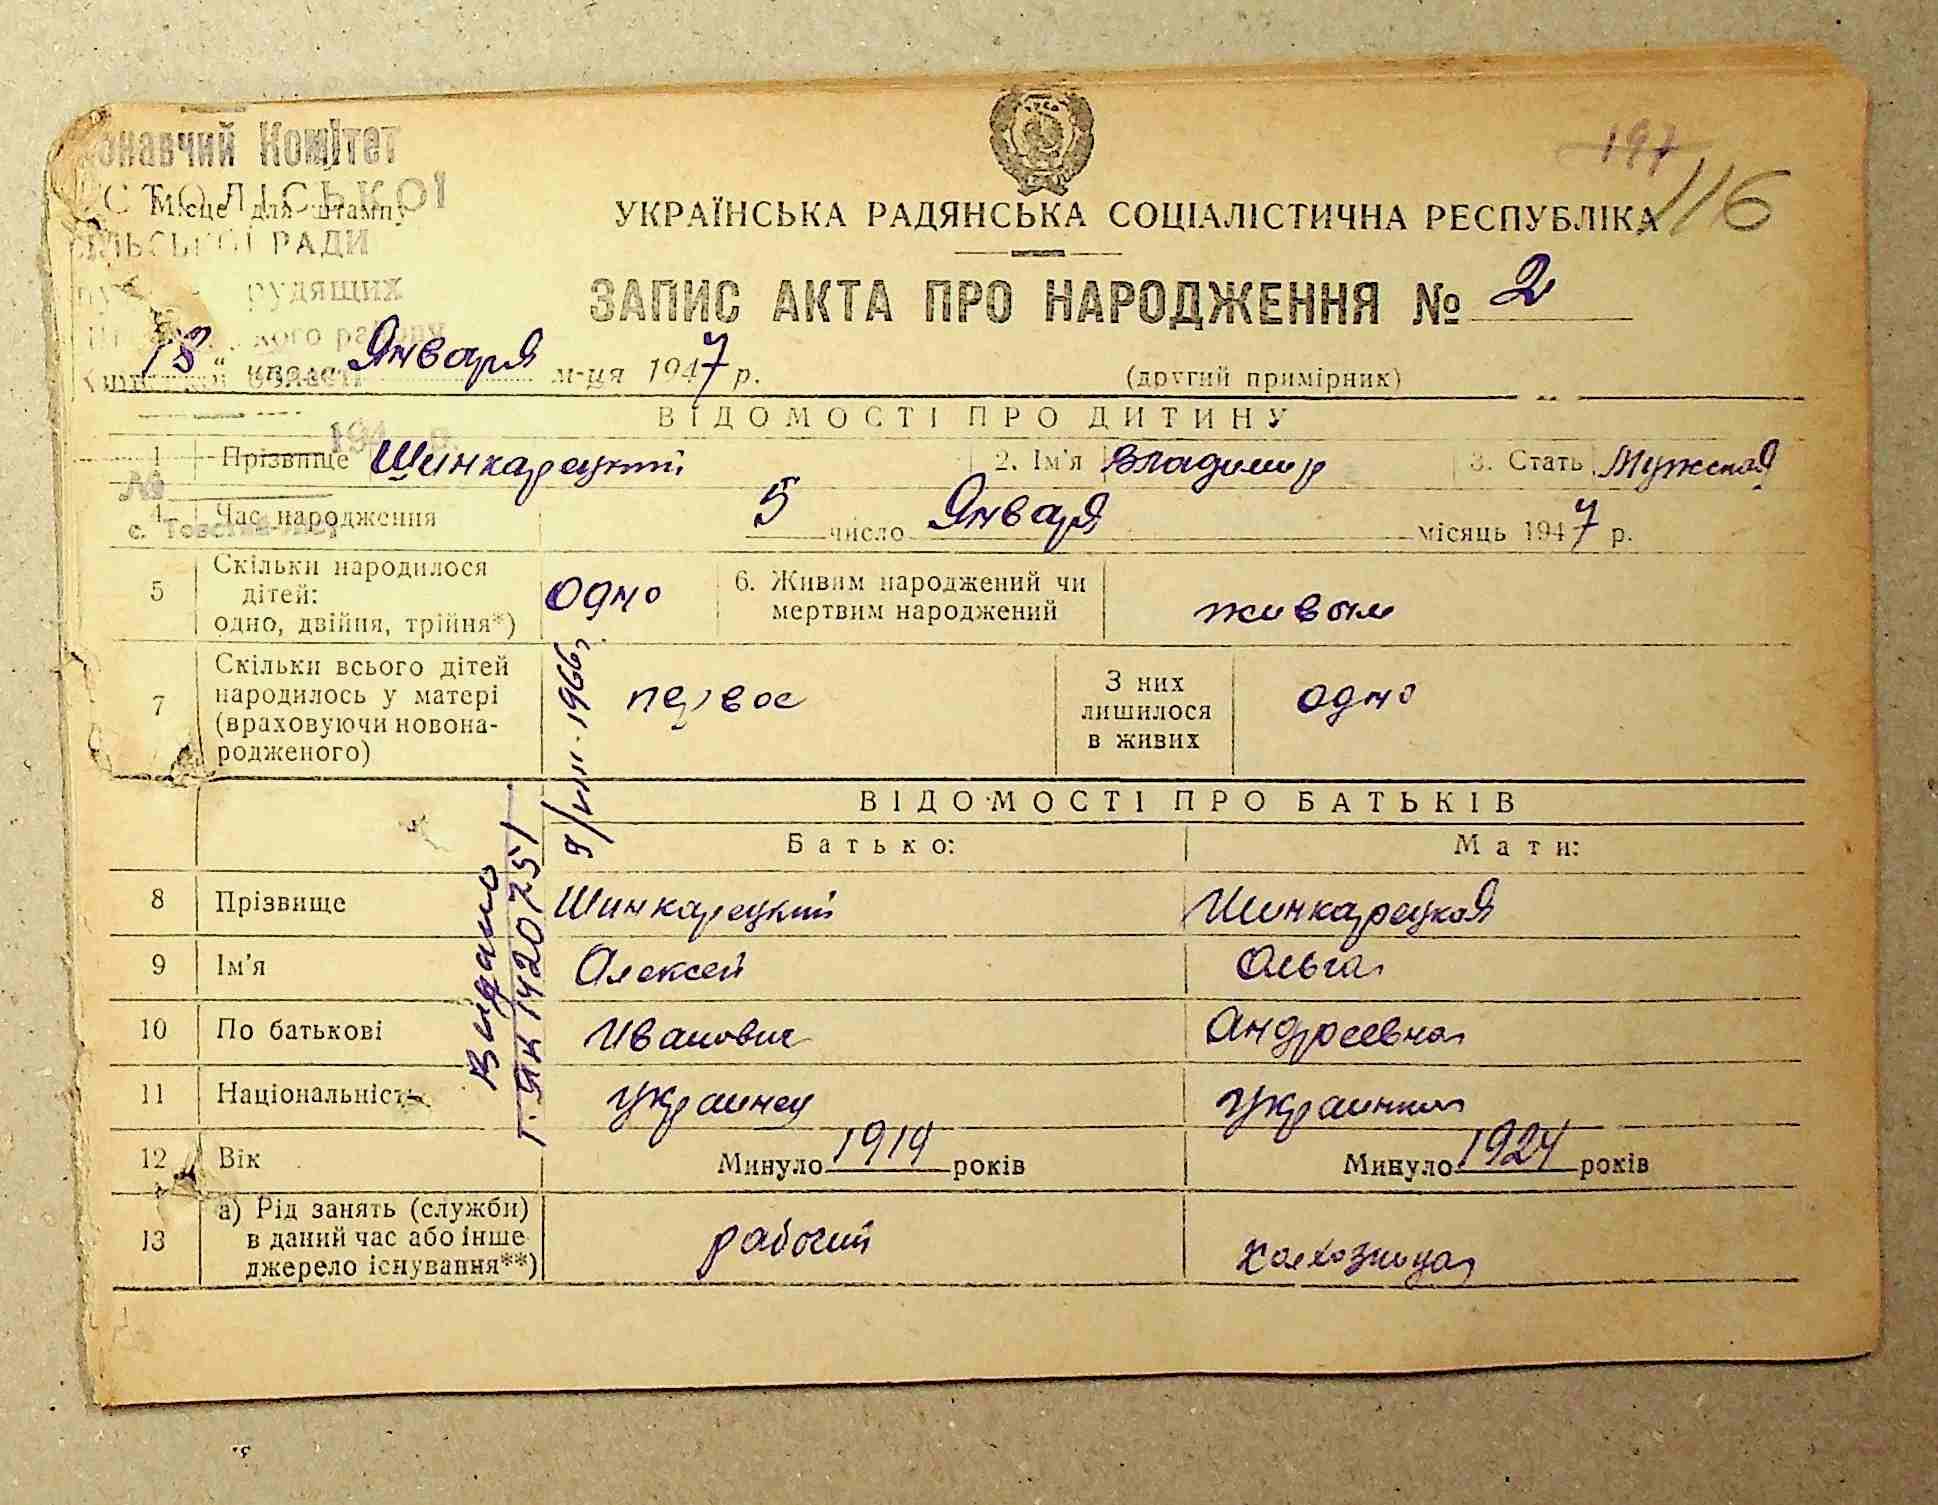 Комітет
197
116
Місце для штампу
РАДИ
УКРАЇНСЬКА РАДЯНСЬКА СОЦІАЛІСТИЧНА РЕСПУБЛІКА
ЗАПИС АКТА ПРО НАРОДЖЕННЯ № 2
18 " Января м-ця 1947 р.
(другий примірник)
ВІДОМОСТІ ПРО ДИТИНУ
1 Прізвище Шинкарецкий 2. Ім'я Владимир 3. Стать Мужская
4 Час народження 5 число Января місяць 1947 р.
5 Скільки народилося дітей: одно, двійня, трійня*) одно 6. Живим народжений чи мертвим народжений живым
7 Скільки всього дітей народилось у матері (враховуючи новона-родженого) первое З них лишилося в живих одно
ВІДОМОСТІ ПРО БАТЬКІВ
Батько: Мати:
8 Прізвище Шинкарецкий Шинкарецкая
9 Ім'я Алексей Ольга
10 По батькові Иванович Андреевна
11 Національність украинец украинка
12 Вік Минуло 1919 років Минуло 1924 років
13 а) Рід занять (служби) в даний час або інше джерело існування**) рабочий колхозница
Видано
1420751
1966г.